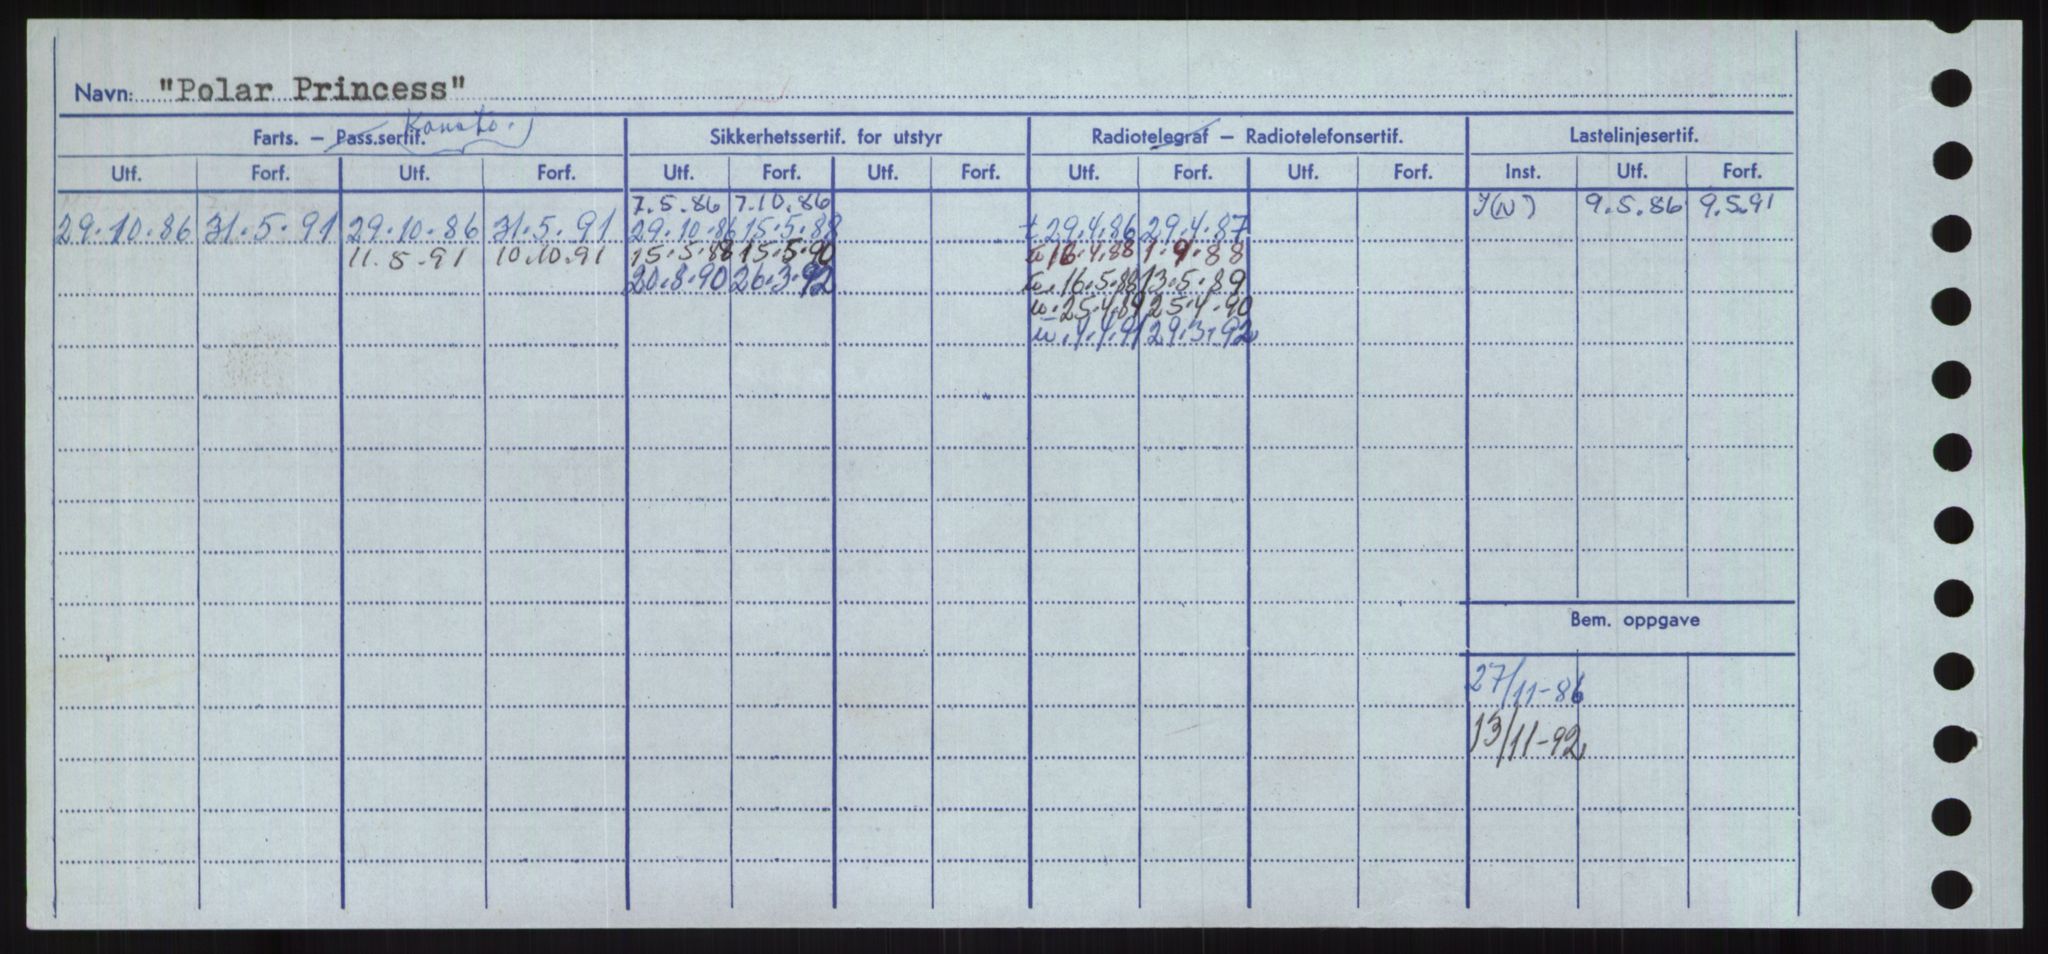 Navn: "Polar Princess"
Konstr.
Farts. – Pass.sertif. Sikkerhetssertif. for utstyr Radiotelegraf – Radiotelefonsertif. Lastelinjesertif.
Utf. Forf. Utf. Forf. Utf. Forf. Utf. Forf. Utf. Forf. Utf. Forf. Inst. Utf. Forf.
7.5.86 7.10.86 I(N) 9.5.86 9.5.91
29.10.86 31.5.91 29.10.86 31.5.91 29.10.86 15.5.88 t 29.4.86 29.4.87
11.5.91 10.10.91 15.5.88 15.5.90 16.4.88 1.9.88
20.8.90 26.3.92 16.5.88 13.5.89
25.4.89 25.4.90
4.4.91 29.3.92
Bem. oppgave
27/11-86
13/11-92